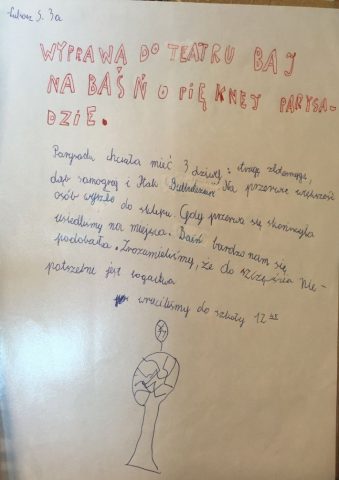 Łukasz S. 3a
WYPRAWA DO TEATRU BAJ
NA BAŚŃ O PIĘKNEJ PARYSA-
DZIE.
Parysada chciała mieć 3 dziwy:
dąb samograj i Na przerwie większość
osób wyszło do sklepu. Gdy przerwa się skończyła
usiedliśmy na miejsca. Baśń bardzo nam się
podobała. Zrozumieliśmy, że do szczęścia nie-
potrzebne jest bogactwo
wróciliśmy do szkoły 12